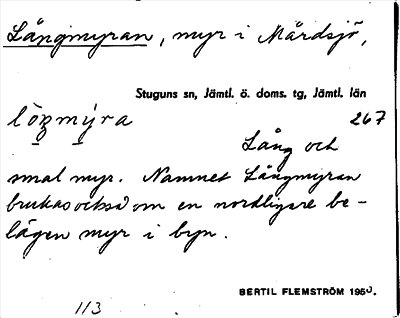 Långmyran, myr i Mårdsjö,
Stuguns sn, Jämtl. ö. doms. tg, Jämtl. län
267
Lång och
smal myr. Namnet Långmyran
brukas också om en nordligare be-
lägen myr i byn.
BERTIL FLEMSTRÖM 195
113